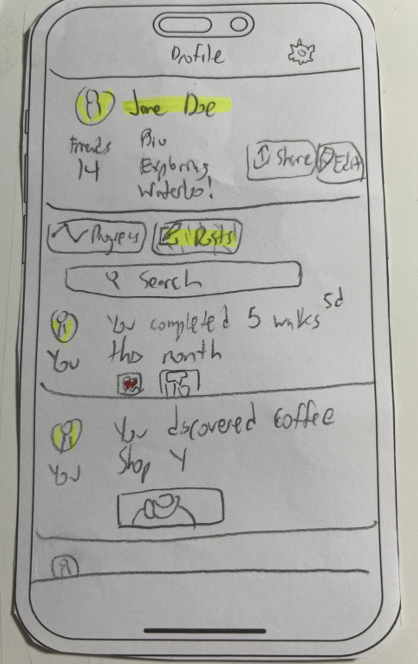 Profile
Jane Doe
Friends
14
Bio
Exploring
Waterloo!
Share
Edit
Progress
Posts
Search
You completed 5 walks 5d
You this month
You discovered coffee
You Shop Y